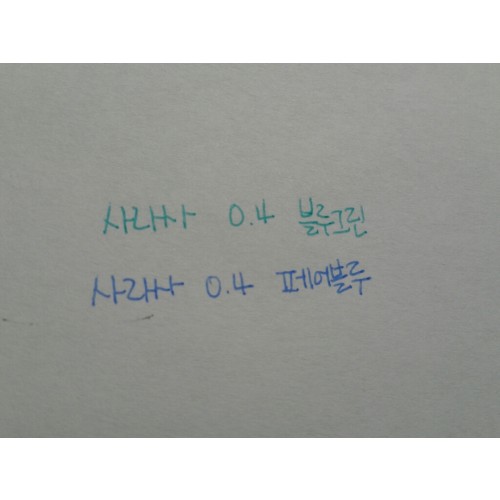 사라사 0.4 블루그린
사라사 0.4 페어블루